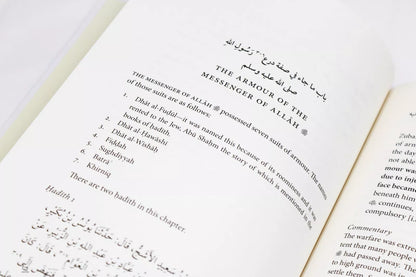 باب ما جاء في صفة درع رسول الله
صلى الله عليه وسلم
THE ARMOUR OF THE
MESSENGER OF ALLĀH ﷺ
THE MESSENGER OF ALLĀH ﷺ possessed seven suits of armour. The names
of those suits are as follows:
1. Dhāt al-Fuḍūl—it was named this because of its roominess and it was
rented to the Jew, Abū Shaḥm the story of which is mentioned in the
books of hadith.
2. Dhāt al-Wishāḥ
3. Dhāt al-Ḥawāshī
4. Fiḍḍah
5. Sughdiyyah
6. Batrāʾ
7. Khirniq
There are two hadith in this chapter.
Hadith 1
حَدَّثَنَا يُونُسُ بْنُ بُكَيْرٍ
Zuba
of arm
and da
due to inj
face became
beneath him
continues,
compulsory [i.
Commentary
The warfare was extrem
tent that many people
had passed away. Th
to high ground was